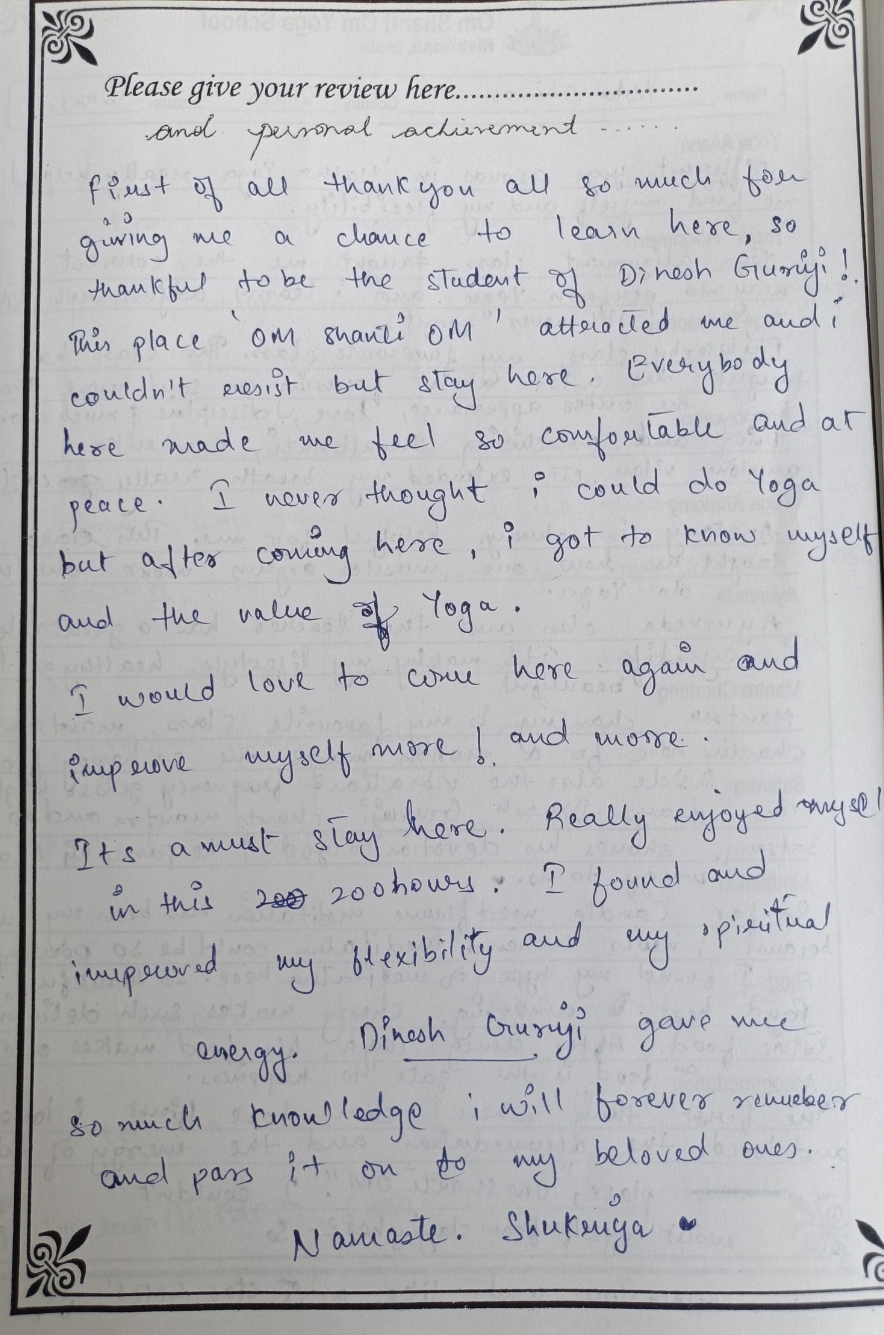 Please give your review here.............................
and personal achievement ......
First of all thank you all so much for
giving me a chance to learn here, so
thankful to be the student of Dinesh Guruji!
This place 'OM shanti OM' attracted me and i
couldn't resist but stay here. Everybody
here made me feel so comfortable and at
peace. I never thought i could do Yoga
but after coming here, i got to know myself
and the value of Yoga.
I would love to come here again and
improve myself more! and more.
Its a must stay here. Really enjoyed mysel
in this 200 200hours. I found and
improved my flexibility and my spiritual
energy. Dinesh Guruji gave me
so much knowledge i will forever remeber
and pass it on to my beloved ones.
Namaste.